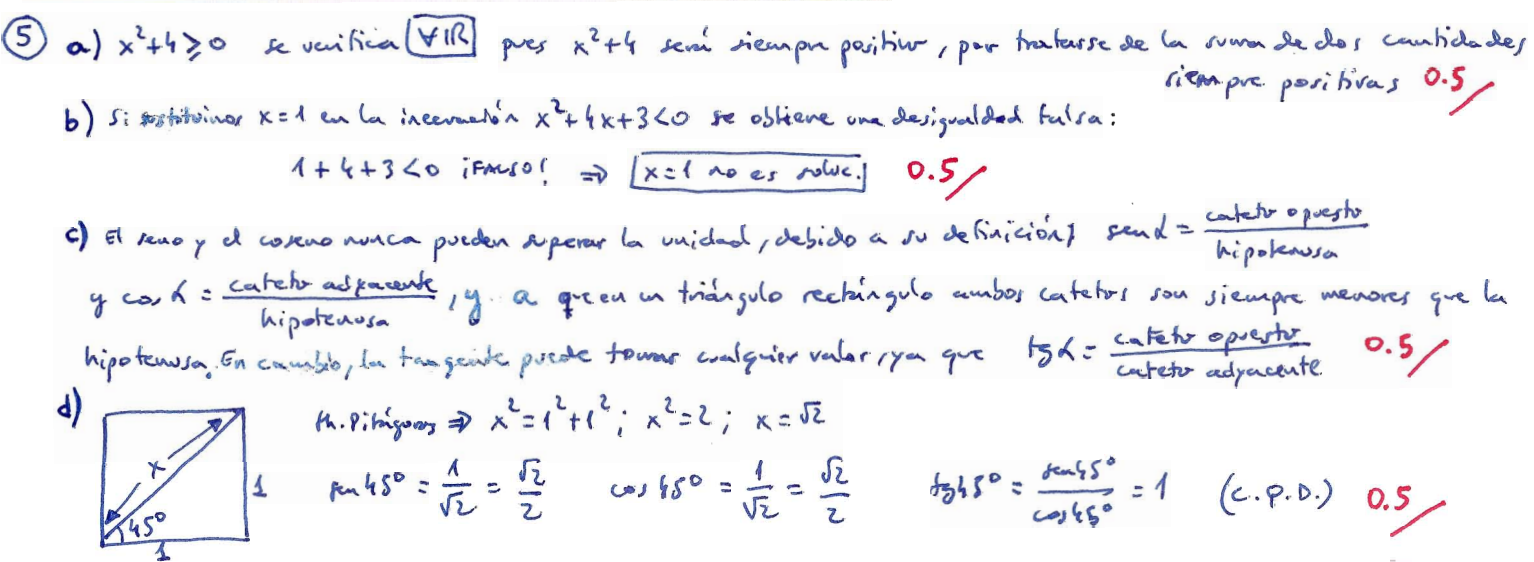 5 a) x²+4⩾0 se verifica ∀ℝ pues x²+4 será siempre positivo, por tratarse de la suma de dos cantidades
siempre positivas 0.5
b) Si sustituimos x=1 en la inecuación x²+4x+3<0 se obtiene una desigualdad falsa:
1+4+3<0 ¡FALSO! ⇒ x=1 no es soluc. 0.5
c) El seno y el coseno nunca pueden superar la unidad, debido a su definición, sen α = cateto opuesto / hipotenusa
y cos α = cateto adyacente / hipotenusa, y a que en un triángulo rectángulo ambos catetos son siempre menores que la
hipotenusa. En cambio, la tangente puede tomar cualquier valor, ya que tg α = cateto opuesto / cateto adyacente 0.5
d) th. Pitágoras ⇒ x²=1²+1²; x²=2; x=√2
x 1 sen 45° = 1/√2 = √2/2 cos 45° = 1/√2 = √2/2 tg 45° = sen 45°/cos 45° = 1 (C.P.D.) 0.5
45°
1